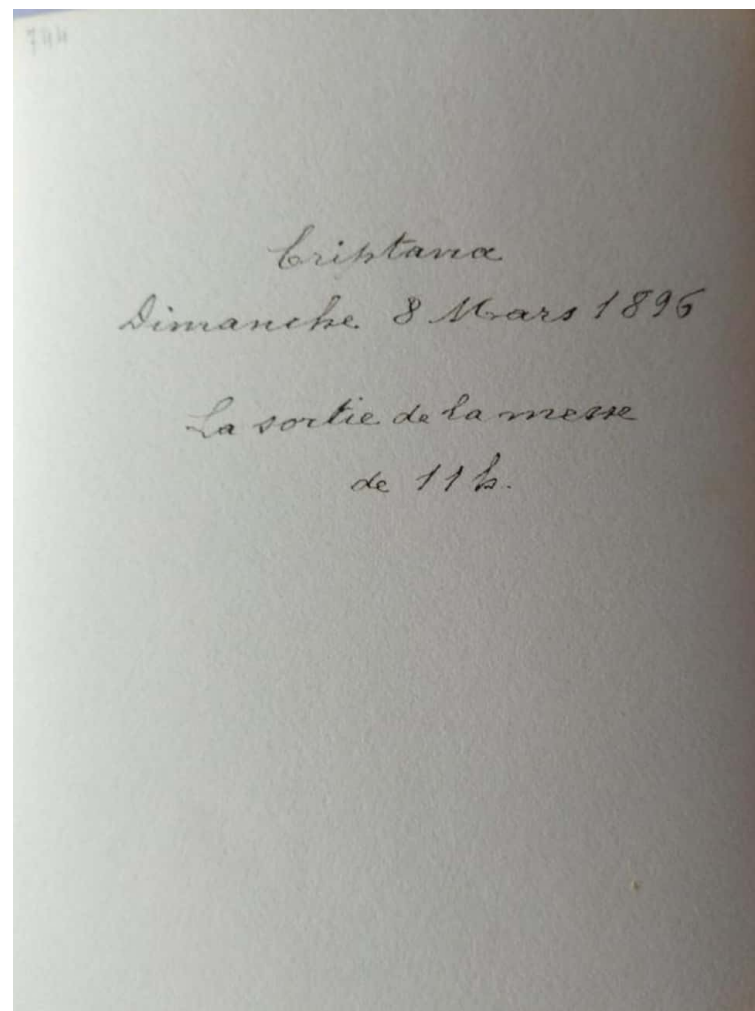 744
Criptana
Dimanche 8 Mars 1896
La sortie de la messe
de 11 h.